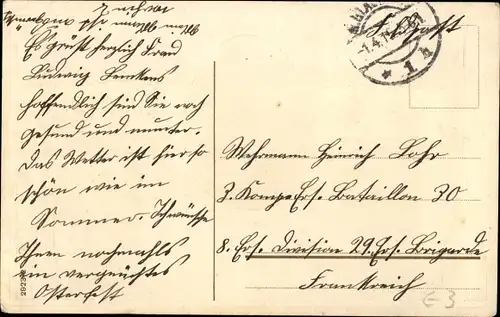 Es grüßt herzlich Frau
Ludwig
hoffendlich sind Sie noch
gesund und munter.
Das Wetter ist hier so
schön wie im
Sommer. Ich wünsche
Ihnen nochmahls
ein vergnügtes
Osterfest
Feldpost
* 1 h
Wehrmann Heinrich Lohr
3. Komp. Ers. Bataillon 30
8. Ers. Division 29. Ers. Brigade
Frankreich